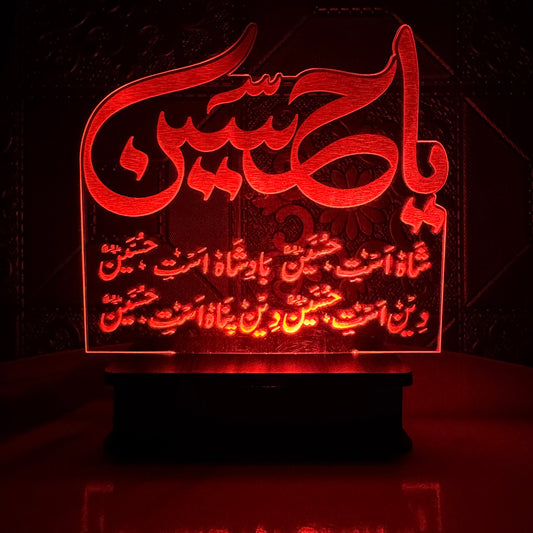 یا حسین
شاہ است حسینؑ بادشاہ است حسینؑ
دین است حسینؑ دین پناہ است حسینؑ